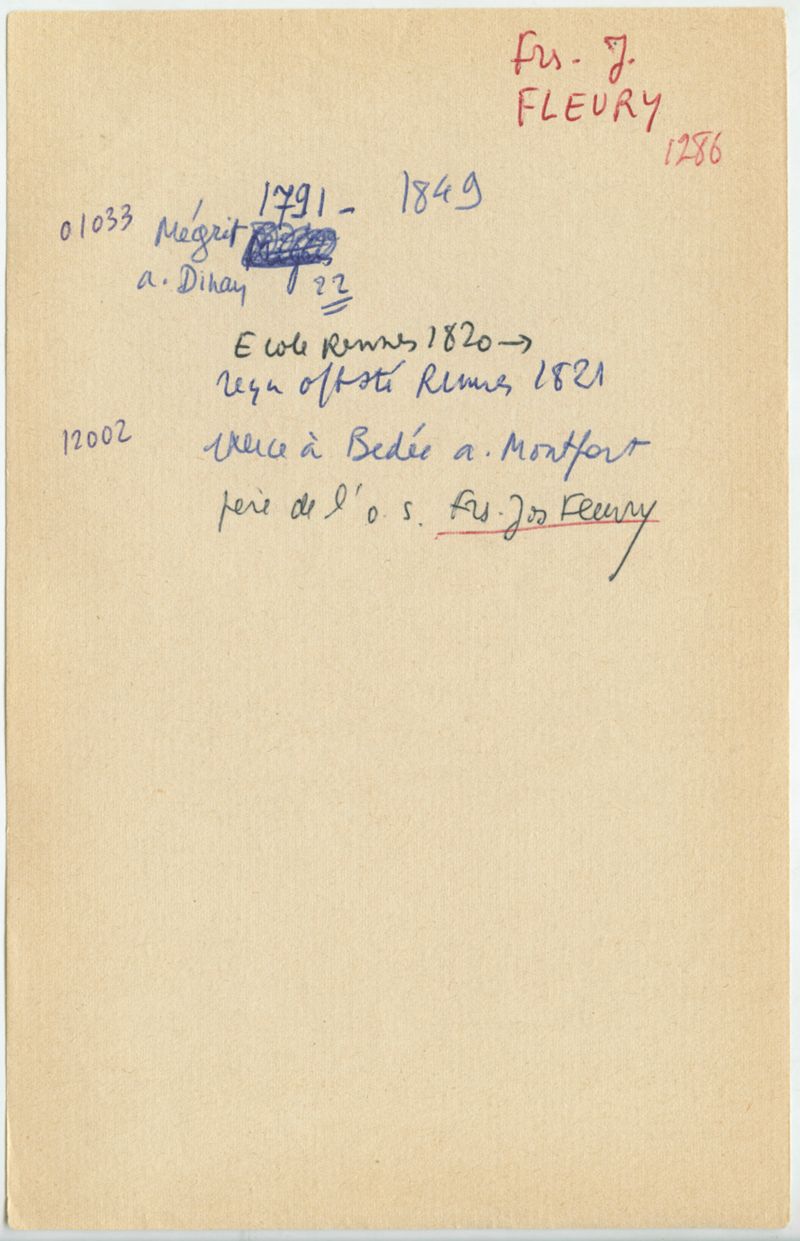 Frs. J.
FLEURY
1286
1791 - 1849
01033 Mégrit
a. Dinan 22
Ecole Rennes 1820 →
reçu off. sté Rennes 1821
12002 exerce à Bedée a. Montfort
père de l'o. s. Frs. Jos Fleury